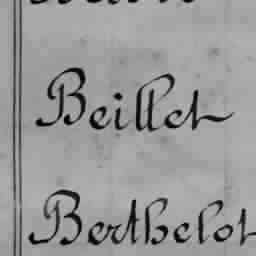 Beillet
Berthelot